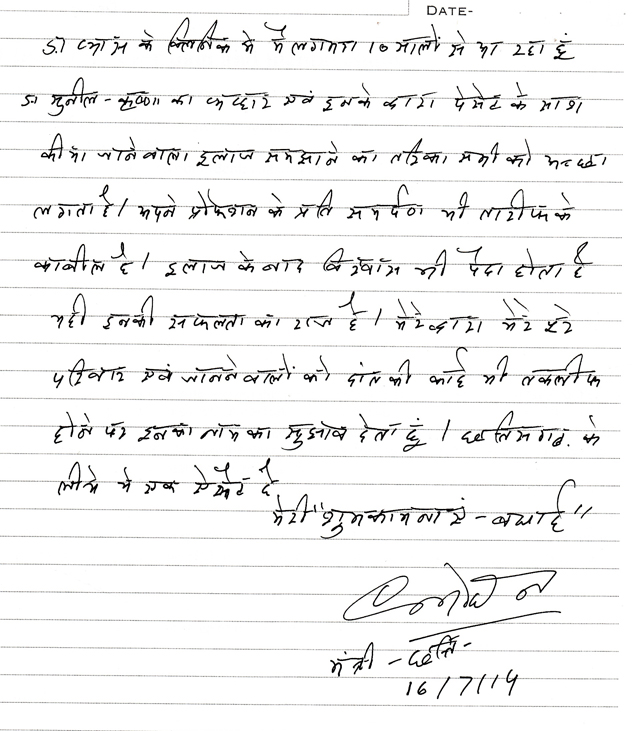 DATE-
डॉ व्यास के क्लिनिक मे मैं लगभग 10 सालों से आ रहा हूं
डॉ सुनील - कृष्णा का व्यवहार एवं इनके द्वारा पेसेंट के साथ
कीया जाने वाला इलाज समझाने का तरिका सभी को अच्छा
लगता है। अपने प्रोफेशन के प्रति समर्पण भी तारीफ के
काबील है। इलाज के बाद विश्वास भी पैदा होता है
यही इनकी सफलता का राज है। मेरे द्वारा मेरे पुरे
परिवार एवं जानने वालों को दांत की कोई भी तकलीफ
होने पर इनका नाम का सुझाव देता हूं। छत्तिसगढ़ के
लीये ये एक ऐसेट है
मेरी "शुभकामनाएं - बधाई"
मंत्री - छत्ति -
16/7/14